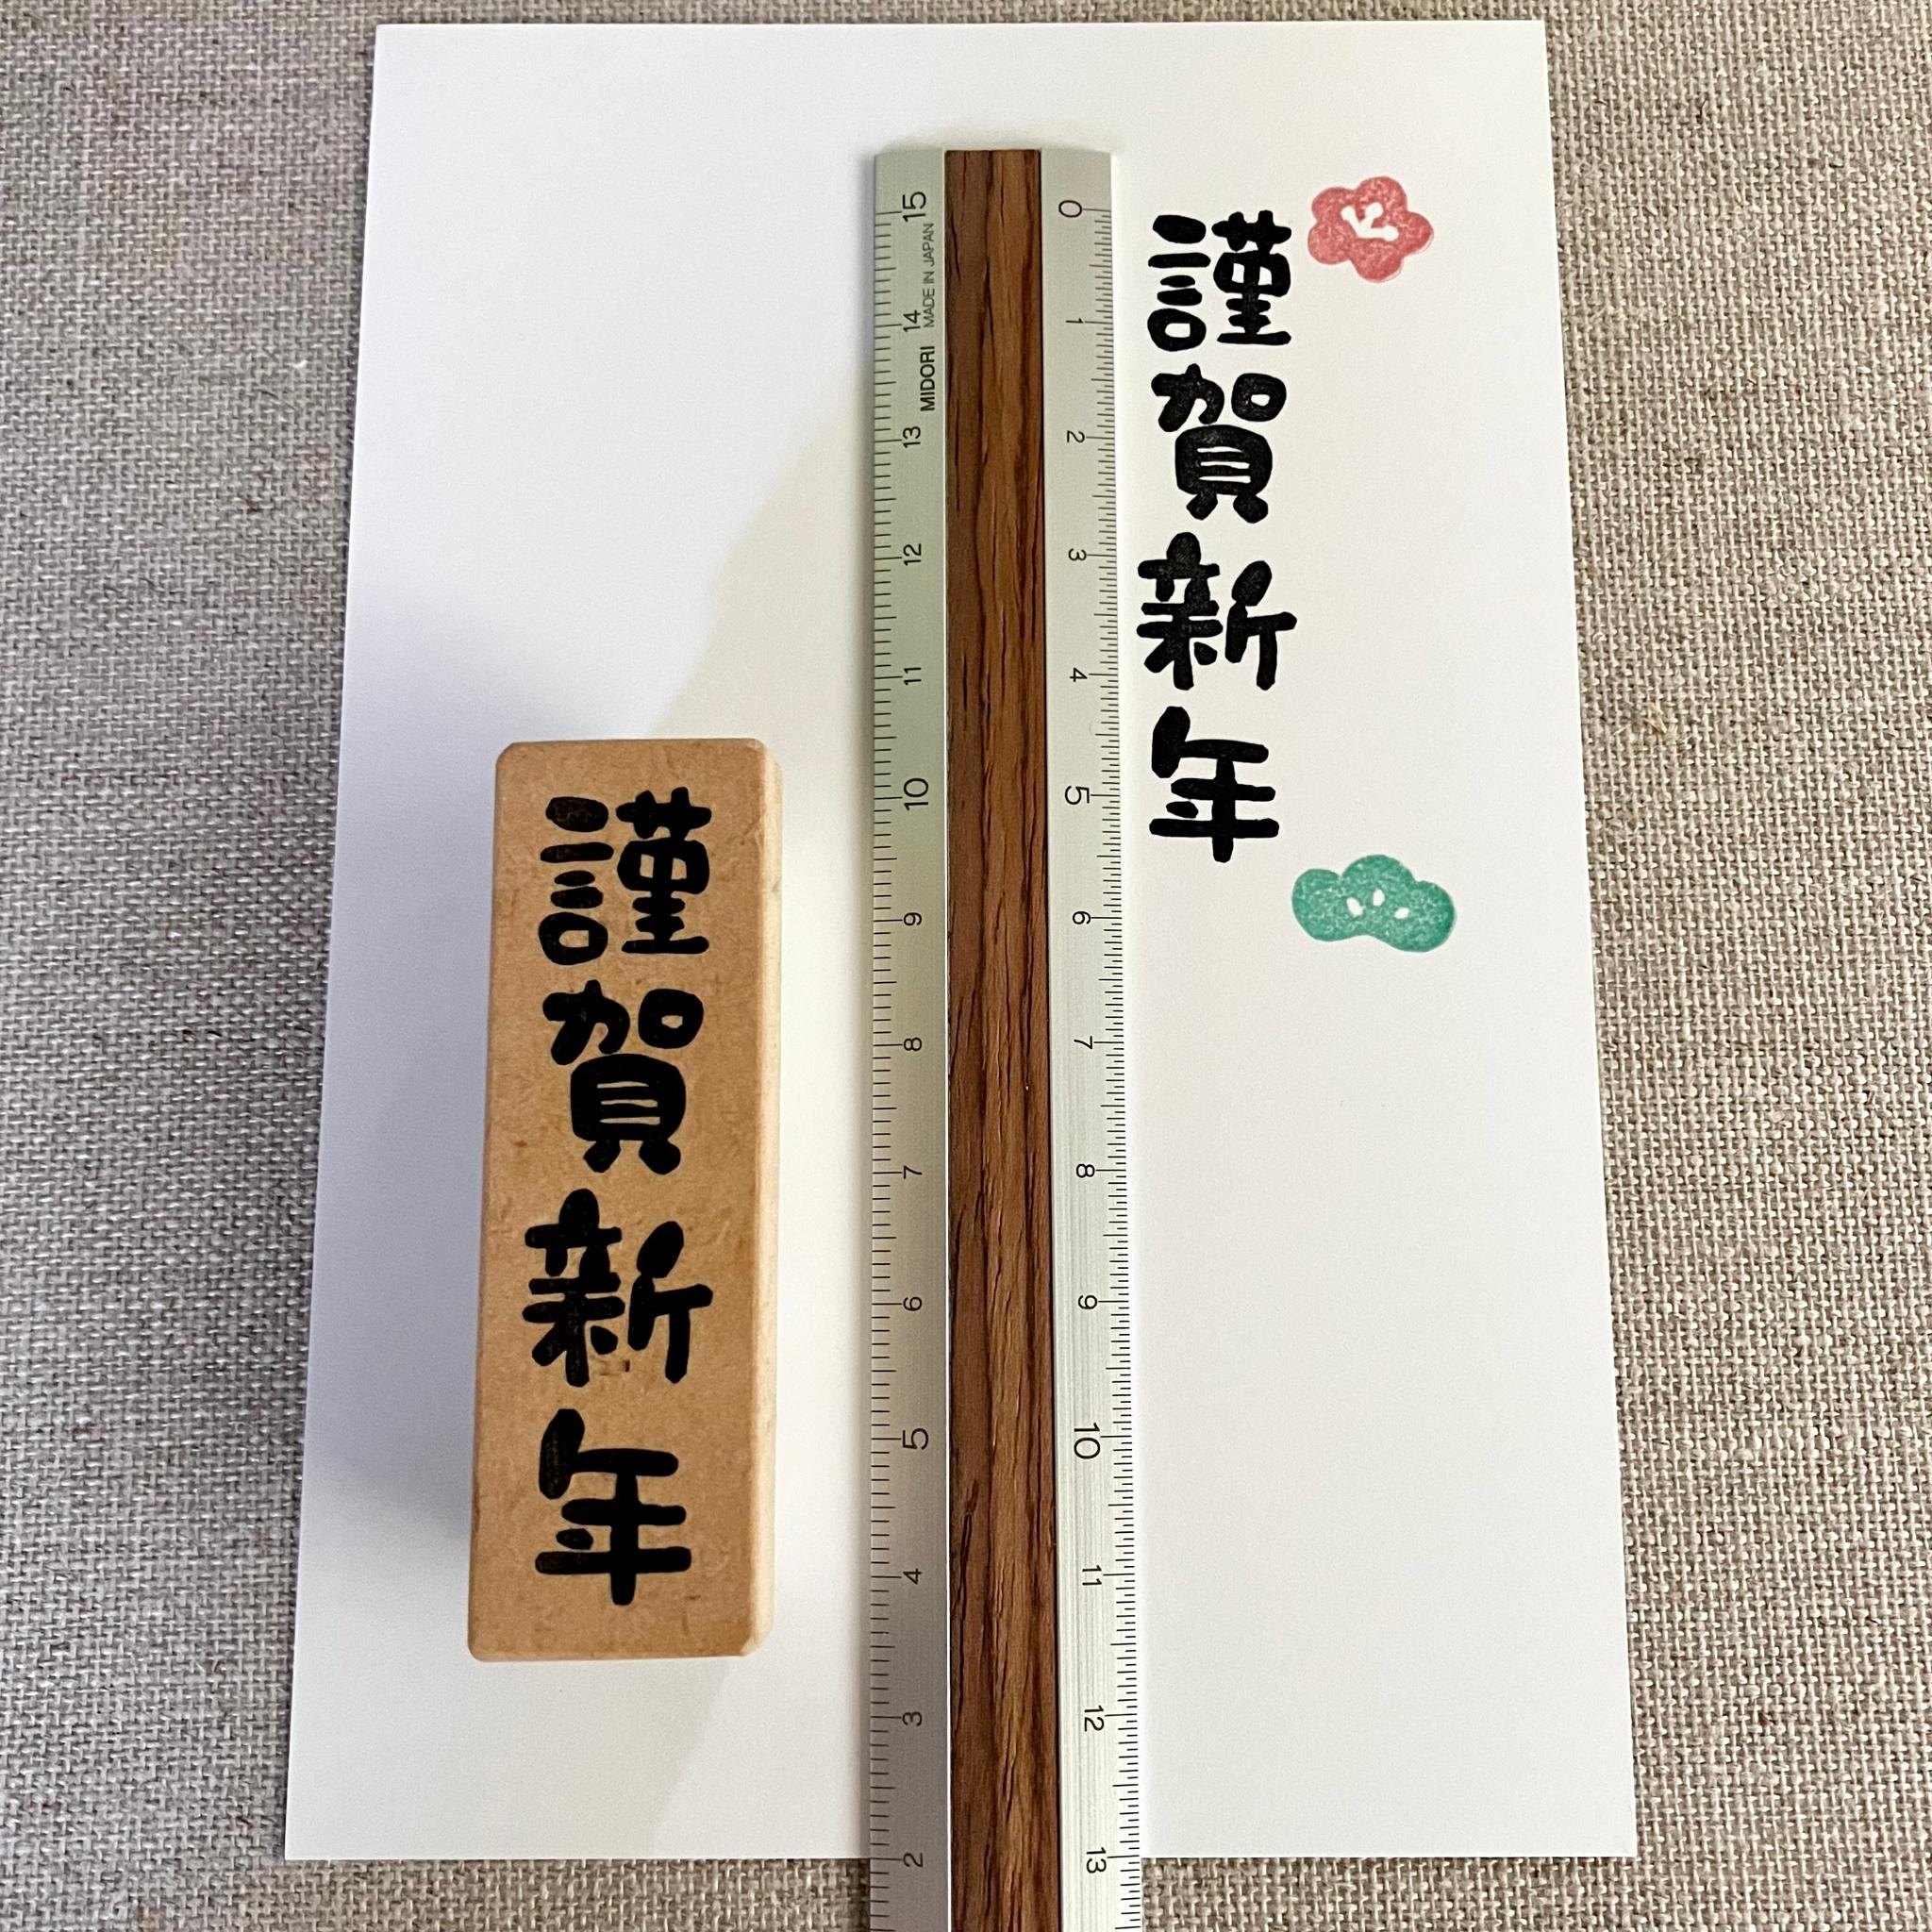 謹賀新年
0 1 2 3 4 5 6 7 8 9 10 11 12 13
15 14 13 12 11 10 9 8 7 6 5 4 3 2
MIDORI MADE IN JAPAN
謹賀新年